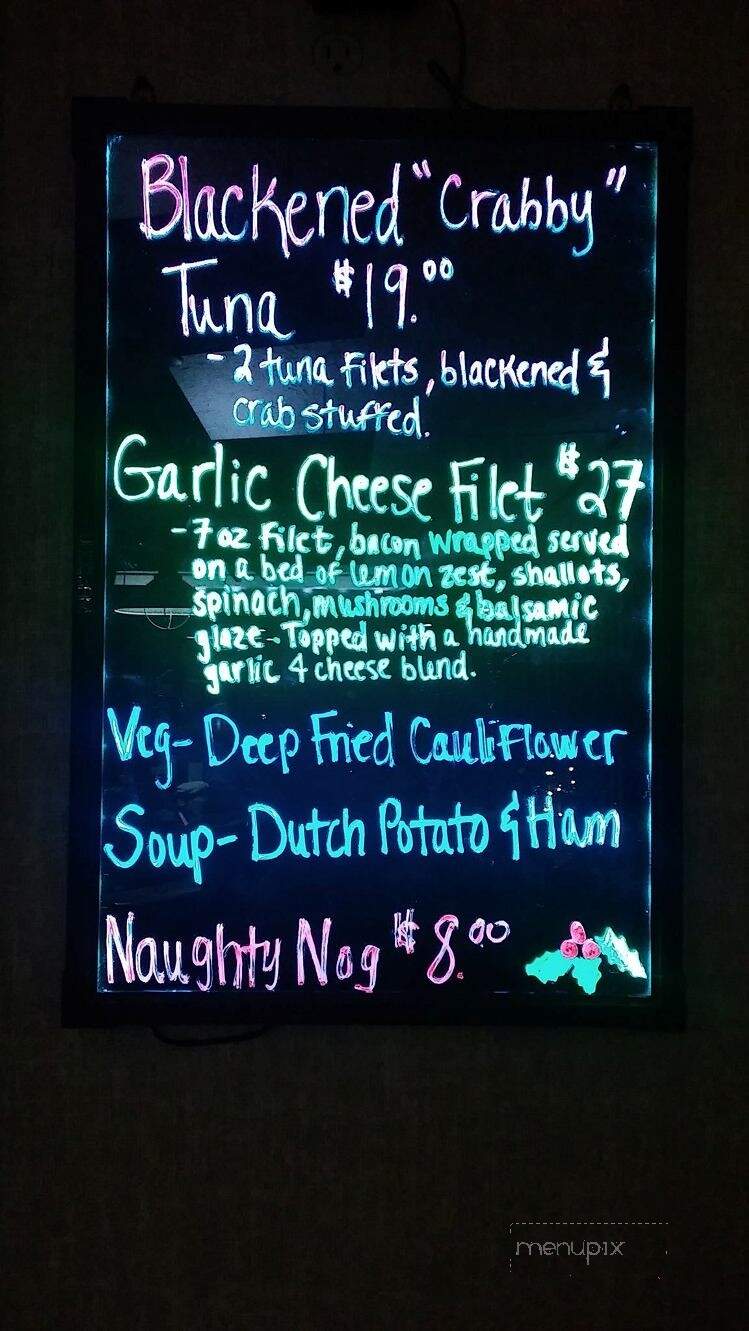 Blackened "Crabby"
Tuna $19.00
- 2 tuna filets, blackened &
crab stuffed.
Garlic Cheese Filet $27
- 7oz Filet, bacon wrapped served
on a bed of lemon zest, shallots,
spinach, mushrooms & balsamic
glaze. Topped with a handmade
garlic 4 cheese blend.
Veg- Deep Fried Cauliflower
Soup- Dutch Potato & Ham
Naughty Nog $8.00
menupix